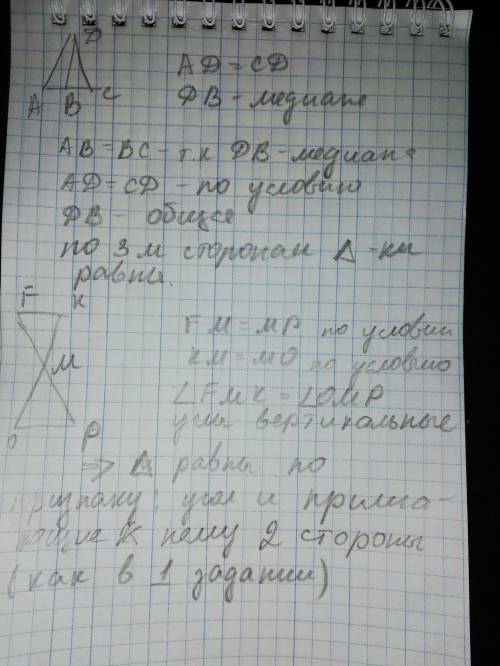 D
AD = CD
DB - медиана
A B C
AB = BC - т.к DB - медиана
AD = CD - по условию
DB - общая
по 3м сторонам Δ-ки
равны.
F K
FM = MP по условии
M
KM = MO по условию
∠FMK = ∠OMP
углы вертикальные
O P
⇒ Δ равны по
признаку: угол и прилега-
ющие к нему 2 стороны
(как в 1 задании)